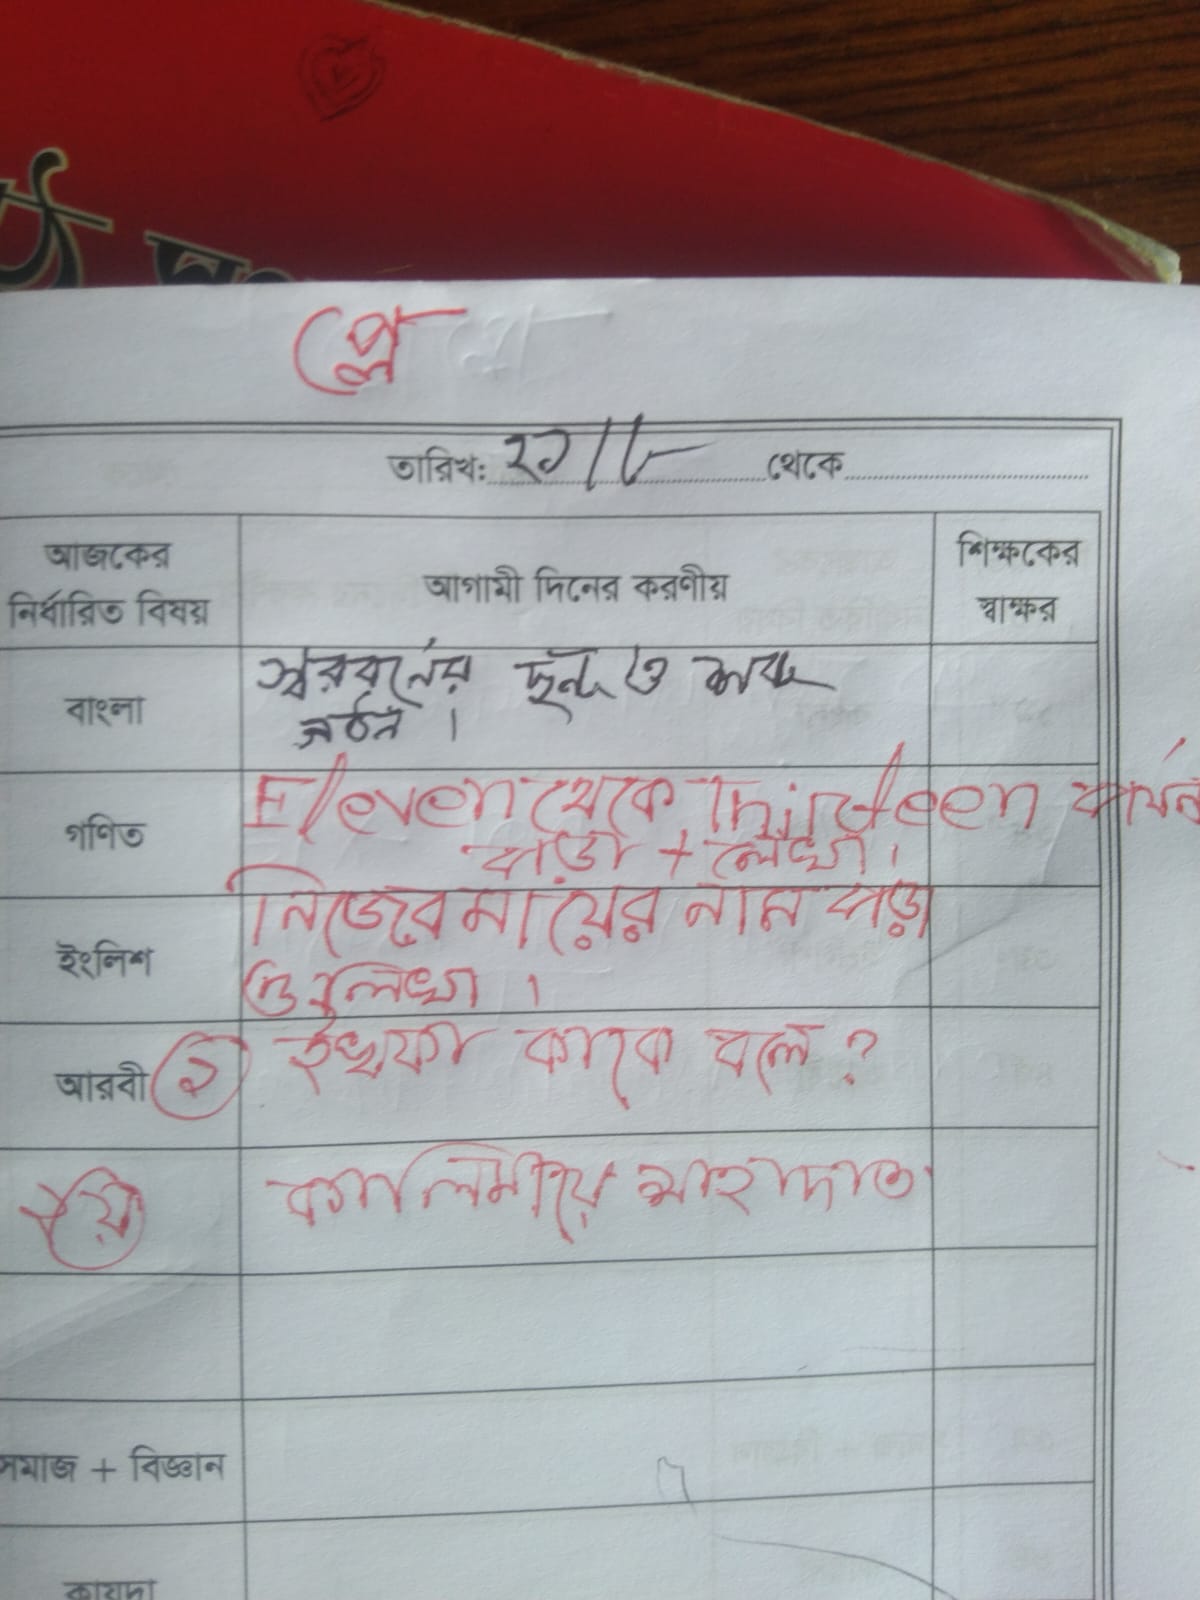 প্লে
তারিখ: থেকে
আজকের নির্ধারিত বিষয়
আগামী দিনের করণীয়
শিক্ষকের স্বাক্ষর
বাংলা
স্বরবর্নের ছন্দ ও শব্দ
গঠন ।
গণিত
Eleven থেকে Thirteen পর্যন্ত
পড়া + লেখা ।
ইংলিশ
নিজের মায়ের নাম পড়া
ও লিখা ।
আরবী ১ ইখফা কাকে বলে ?
কালিমায়ে শাহাদাত
সমাজ + বিজ্ঞান
কায়দা